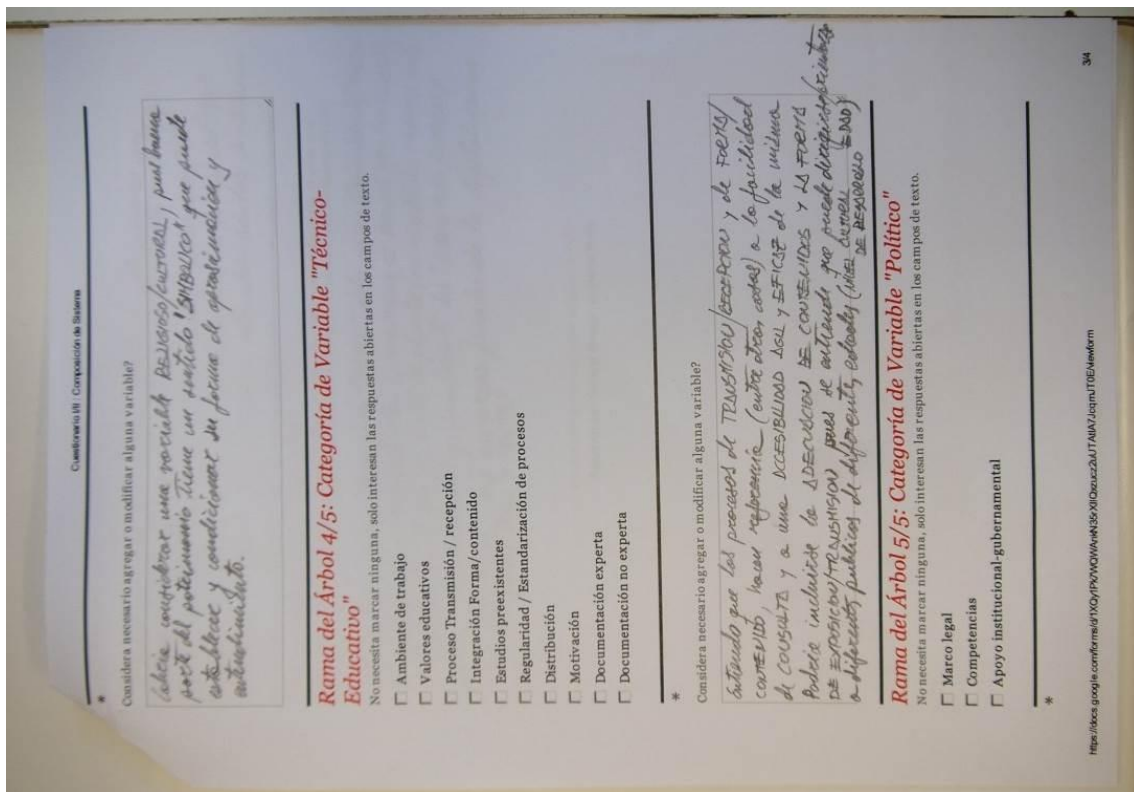 Cuestionario I/II : Composición de Sistema
*
Considera necesario agregar o modificar alguna variable?
Cabría considerar una variable RELIGIOSO/CULTURAL, pues buena
parte del patrimonio tiene un sentido "SIMBOLICO" que puede
establecer y condicionar su forma de aprehendición y
entendimiento.
Rama del Árbol 4/5: Categoría de Variable "Técnico-
Educativo"
No necesita marcar ninguna, solo interesan las respuestas abiertas en los campos de texto.
Ambiente de trabajo
Valores educativos
Proceso Transmisión / recepción
Integración Forma/contenido
Estudios preexistentes
Regularidad / Estandarización de procesos
Distribución
Motivación
Documentación experta
Documentación no experta
*
Considera necesario agregar o modificar alguna variable?
Entiendo que los procesos de TRANSMISION/RECEPCION y de FORMA/
CONTENIDO, hacen referencia (entre otras cosas) a la facilidad
de CONSULTA y a una ACCESIBILIDAD AGIL y EFICAZ de la misma
Podría incluirse la ADECUACION DE CONTENIDOS Y LA FORMA
DE EXPOSICION/TRANSMISION pues se entiende que puede dirigirse
a diferentes públicos de diferentes estados (NIVEL CULTURAL EDAD)
DE DESARROLLO
Rama del Árbol 5/5: Categoría de Variable "Político"
No necesita marcar ninguna, solo interesan las respuestas abiertas en los campos de texto.
Marco legal
Competencias
Apoyo institucional-gubernamental
*
3/4